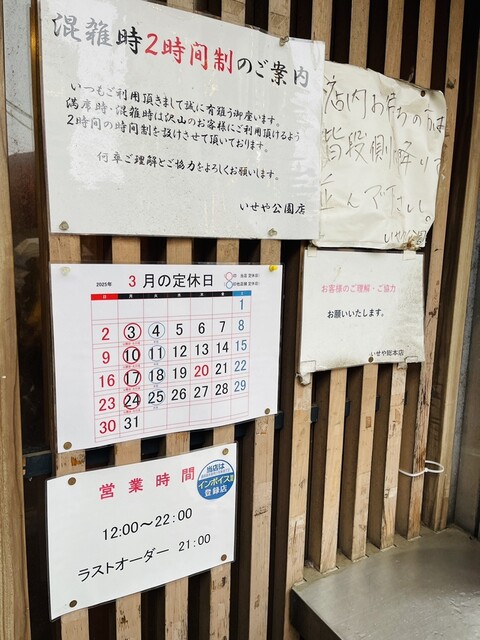 混雑時2時間制のご案内
いつもご利用頂きまして誠に有難う御座います。
満席時・混雑時は沢山のお客様にご利用頂けるよう
2時間の時間制を設けさせて頂いております。
何卒ご理解とご協力をよろしくお願いします。
いせや公園店
店内お待ちの方は
階段側
並んで下さい。
いせや公園
お客様のご理解・ご協力
お願いいたします。
いせや総本店
2025年 3月の定休日
日 月 火 水 木 金 土
1
2 3 4 5 6 7 8
9 10 11 12 13 14 15
16 17 18 19 20 21 22
23 24 25 26 27 28 29
30 31
営業時間
12:00～22:00
ラストオーダー 21:00
当店は
インボイス
登録店